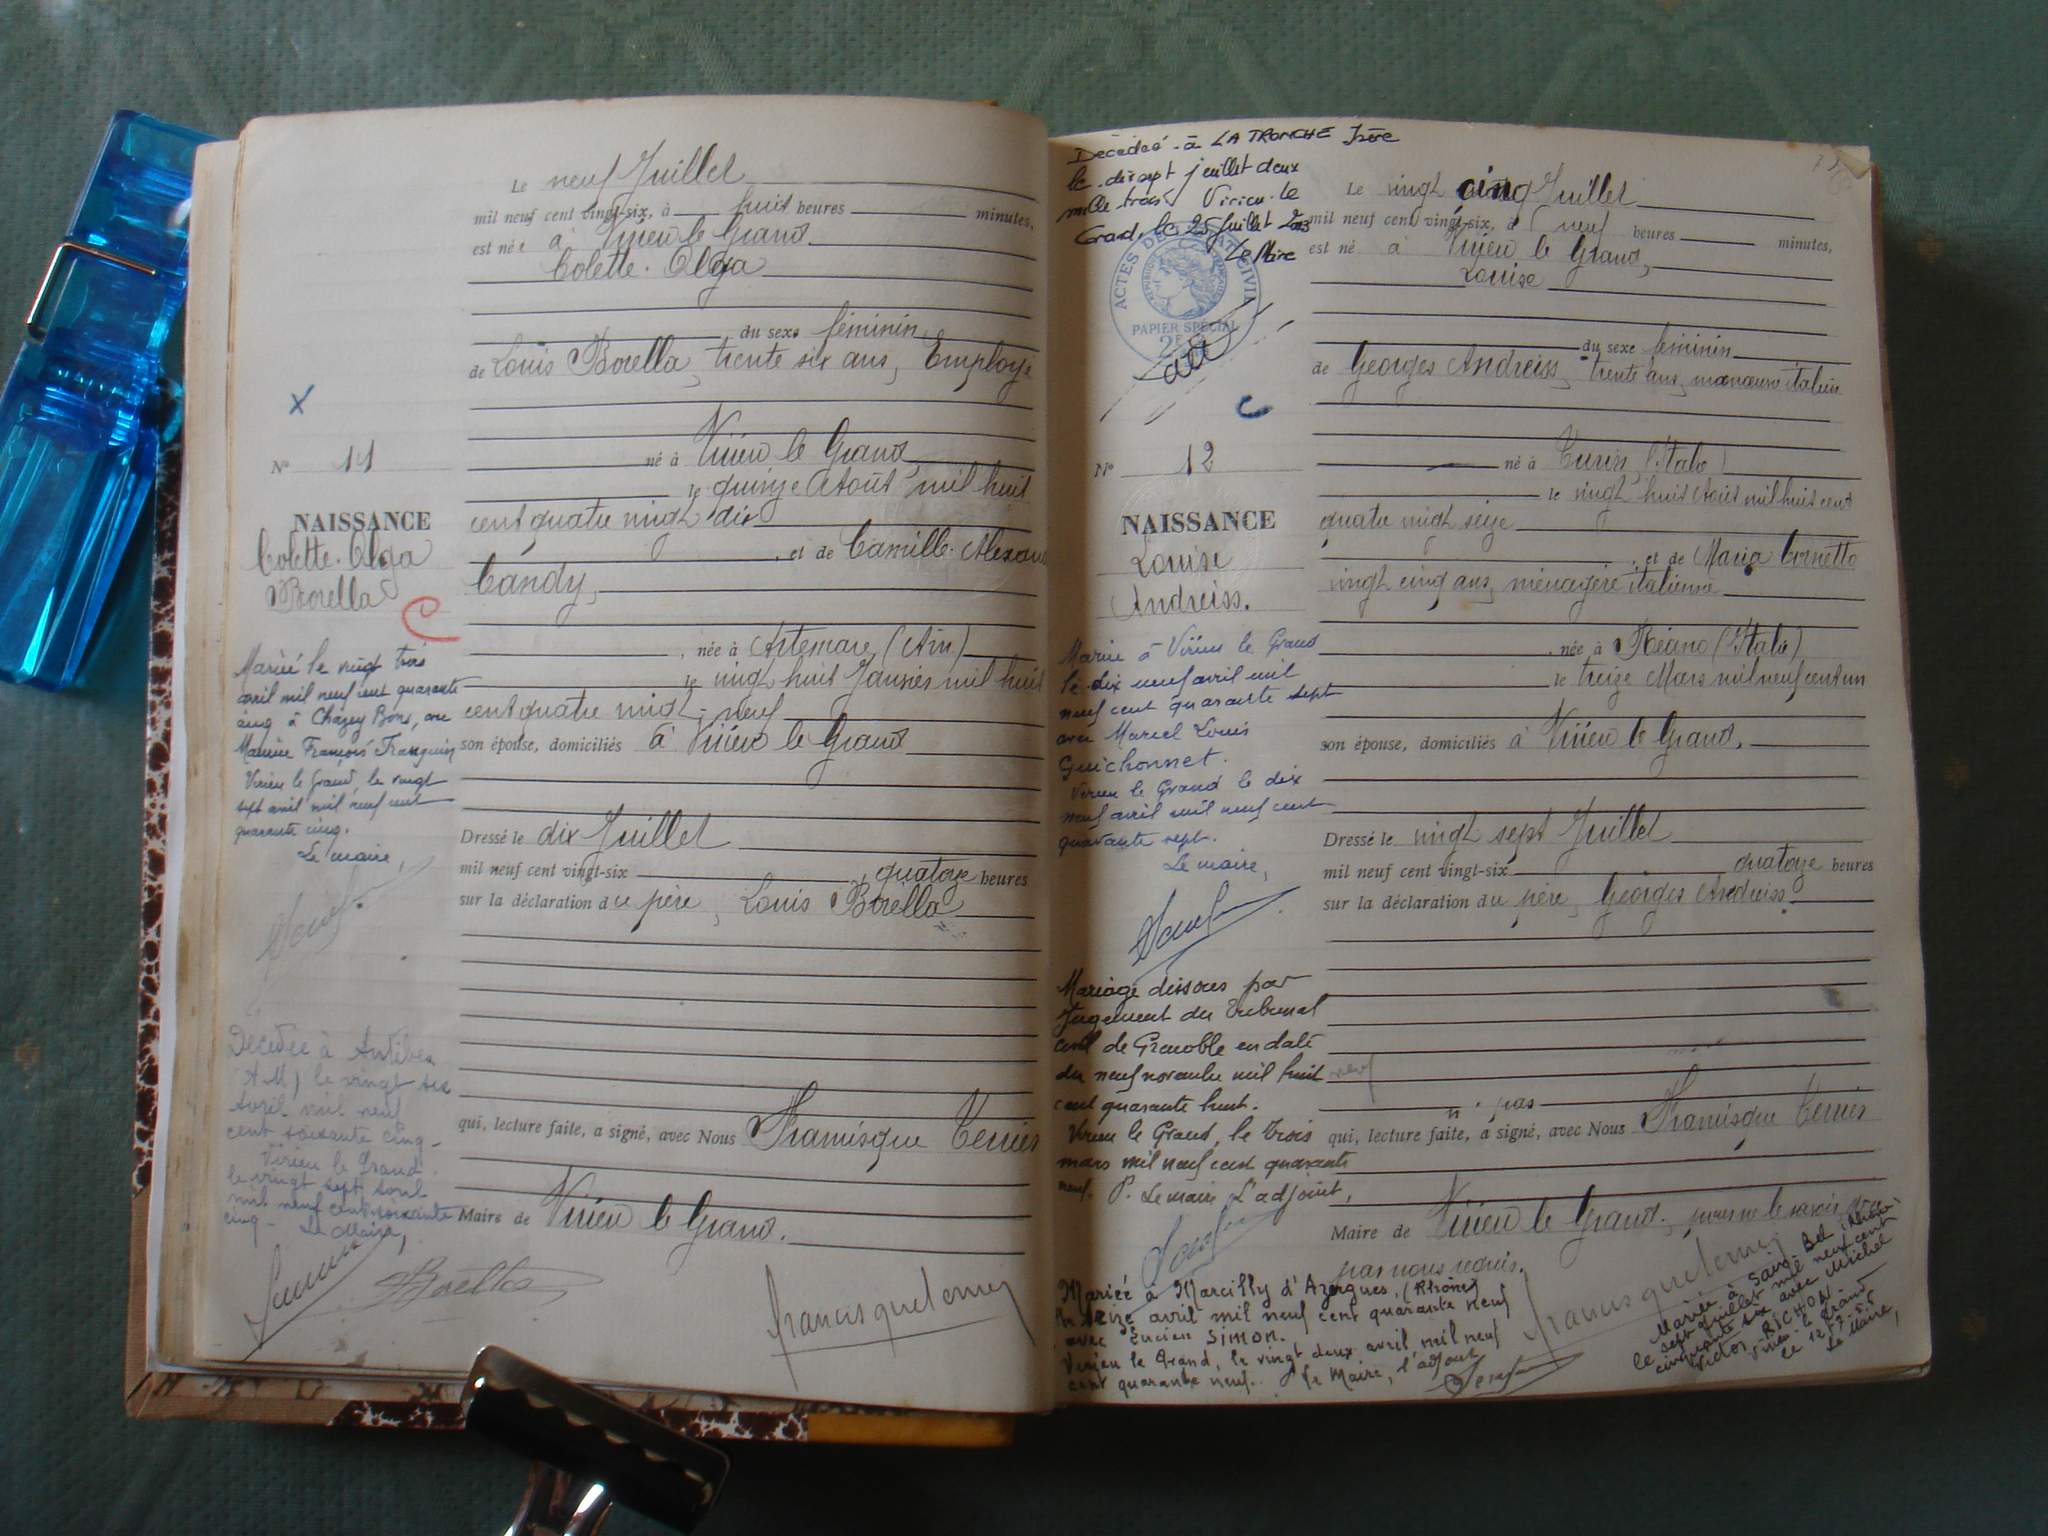 Le neuf Juillet
mil neuf cent vingt-six, à huit heures minutes,
est née à Virieu le Grand
Colette. Olga
du sexe féminin
de Louis Borella, trente six ans, Employé
né à Virieu le Grand
le quinze Août mil huit
cent quatre vingt dix
, et de Camille. Alexan
Candy,
, née à Artemare (Ain)
le vingt huit Janvier mil huit
cent quatre vingt-neuf
son épouse, domiciliés à Virieu le Grand
Dressé le dix Juillet
mil neuf cent vingt-six, quatorze heures
sur la déclaration du père, Louis Borella
qui, lecture faite, a signé, avec Nous Francisque Terrier
Maire de Virieu le Grand.
N° 11
NAISSANCE
Colette. Olga
Borella
C
Mariée le vingt trois
avril mil neuf cent quarante
cinq à Chazey Bons, avec
Maurice François
Virieu le Grand, le vingt
sept avril mil neuf cent
quarante cinq.
Le maire,
Décédée à Antibes
(A.M) le vingt six
Avril mil neuf
cent soixante cinq -
Virieu le Grand
le vingt sept avril
mil neuf cent soixante
cinq - Le Maire,
Borella
francisque terrier
Décédée - à LA TRONCHE Isère
le dix sept juillet deux
mille trois Virieu-le
Grand, le 25 juillet 2003
Le Maire
ACTES DE L'ETAT CIVIL
PAPIER SPÉCIAL
2F
N° 12
NAISSANCE
Louise
Andreiss.
Mariée à Virieu le Grand
le dix neuf avril mil
neuf cent quarante sept
avec Marcel Louis
Guichonnet.
Virieu le Grand le dix
neuf avril mil neuf cent
quarante sept.
Le maire,
Mariage dissous par
Jugement du Tribunal
civil de Grenoble en date
du neuf novembre mil huit neuf
cent quarante huit.
Virieu le Grand, le trois
mars mil neuf cent quarante
neuf. P. Le maire L'adjoint,
Mariée à Marcilly d'Azergues, (Rhône)
le seize avril mil neuf cent quarante neuf
avec Lucien SIMON.
Virieu le Grand, le vingt deux avril mil neuf
cent quarante neuf. P. le Maire, l'adjoint
Le vingt cinq Juillet
mil neuf cent vingt-six, à neuf heures minutes,
est né à Virieu le Grand,
Louise
du sexe féminin
de Georges Andreiss, trente ans, manœuvre italien
né à Turin (Italie)
le vingt huit Août mil huit cent
quatre vingt seize
, et de Maria Cornetto
vingt cinq ans, ménagère italienne
, née à Réano (Italie)
le treize Mars mil neuf cent un
son épouse, domiciliés à Virieu le Grand,
Dressé le vingt sept Juillet
mil neuf cent vingt-six quatorze heures
sur la déclaration du père, Georges Andreiss
n' pas
qui, lecture faite, a signé, avec Nous Francisque Terrier
Maire de Virieu le Grand, pour ne le savoir
par nous requis.
francisque terrier
Mariée à Saint Bel (Rhône)
le sept Juillet mil neuf cent
cinquante six avec Michel
Victor RICHON
Virieu-le-Grand
le 12.7.56
Le Maire,